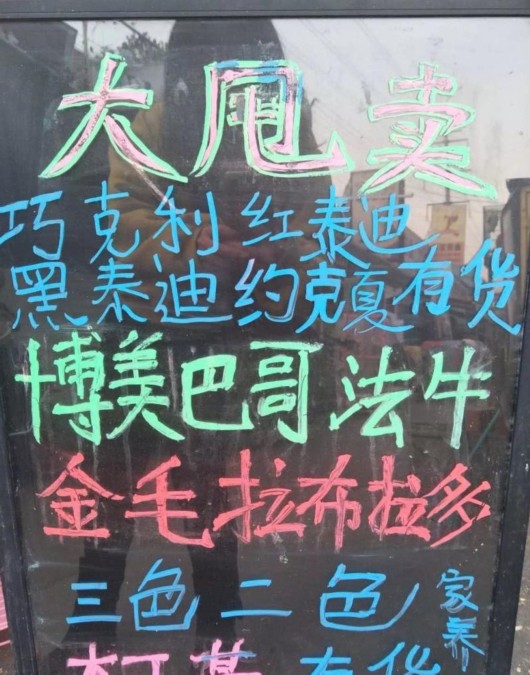 大甩卖
巧克利 红泰迪
黑泰迪约克夏有货
博美巴哥法牛
金毛拉布拉多
三色二色
家养
有货